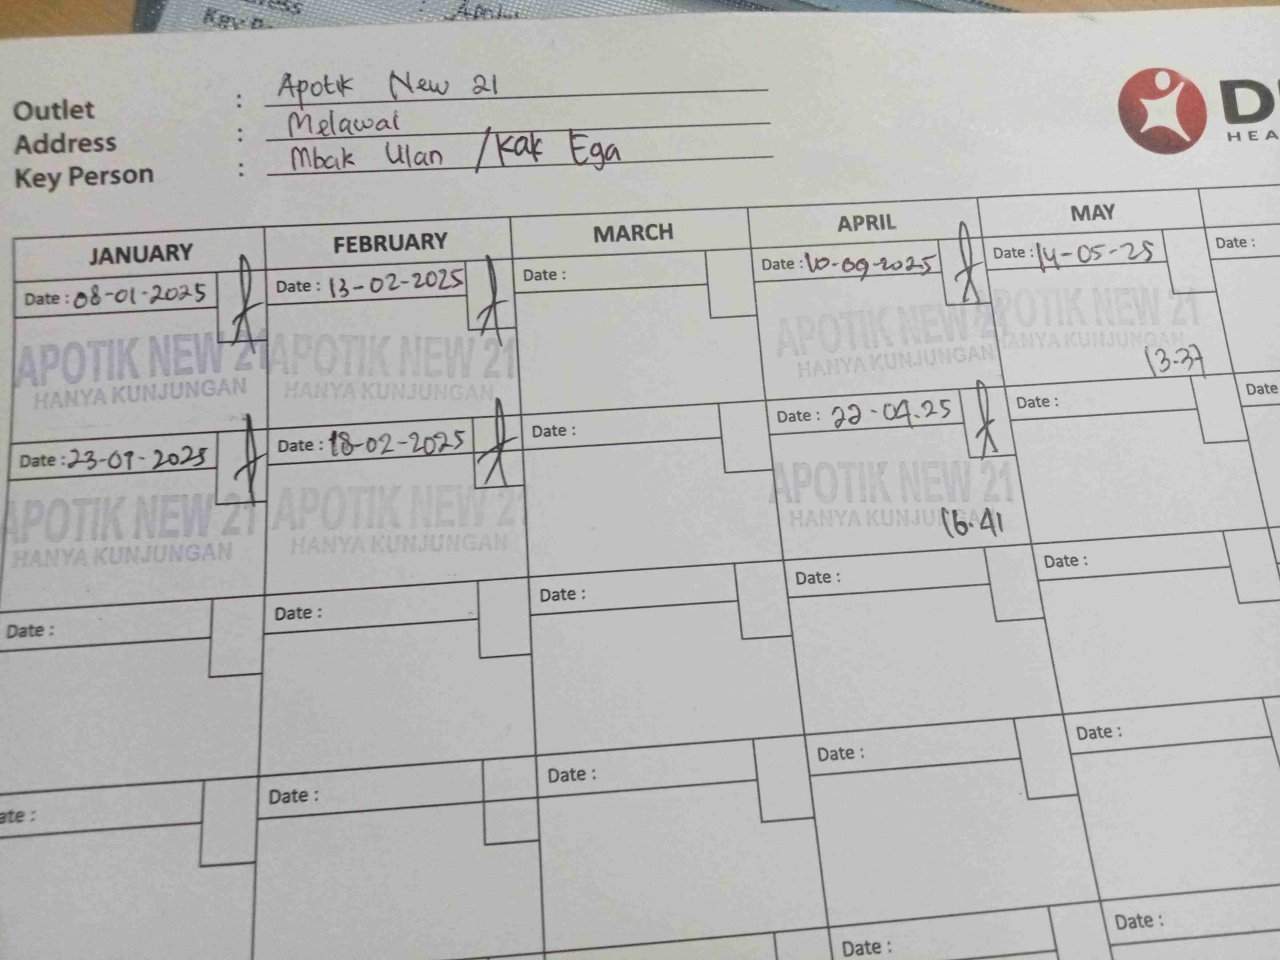 Outlet : Apotik New 21
Address : Melawai
Key Person : Mbak Ulan / Kak Ega
HEA
JANUARY FEBRUARY MARCH APRIL MAY
Date : 08-01-2025 Date : 13-02-2025 Date : Date : 10-09-2025 Date : 14-05-25 Date :
APOTIK NEW 21 APOTIK NEW 21 APOTIK NEW 2 POTIK NEW 21
HANYA KUNJUNGAN HANYA KUNJUNGAN HANYA KUNJUNGAN HANYA KUNJUNGAN
13.37
Date : 23-01-2025 Date : 18-02-2025 Date : Date : 22-04.25 Date : Date
APOTIK NEW 21 APOTIK NEW 21 APOTIK NEW 21
HANYA KUNJUNGAN HANYA KUNJUNGAN HANYA KUNJU
16.41
Date : Date : Date : Date : Date :
ate : Date : Date : Date : Date :
Date : Date :